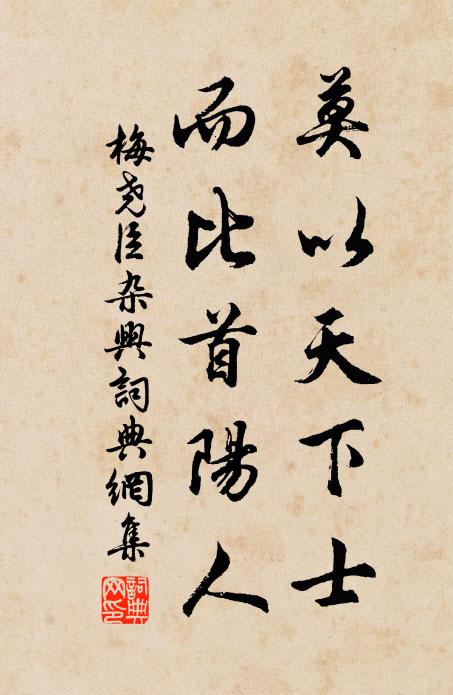 莫以天下士
而比首陽人
梅尧臣杂興詞典網集
詞典
网印